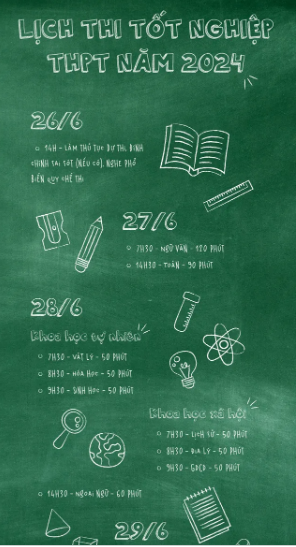 LỊCH THI TỐT NGHIỆP
THPT NĂM 2024
26/6
14H - LÀM THỦ TỤC DỰ THI, ĐÍNH
CHÍNH SAI SÓT (NẾU CÓ), NGHE PHỔ
BIẾN QUY CHẾ THI
27/6
7H30 - NGỮ VĂN - 120 PHÚT
14H30 - TOÁN - 90 PHÚT
28/6
Khoa học tự nhiên
7H30 - VẬT LÝ - 50 PHÚT
8H30 - HÓA HỌC - 50 PHÚT
9H30 - SINH HỌC - 50 PHÚT
Khoa học xã hội
7H30 - LỊCH SỬ - 50 PHÚT
8H30 - ĐỊA LÝ - 50 PHÚT
9H30 - GDCD - 50 PHÚT
14H30 - NGOẠI NGỮ - 60 PHÚT
29/6